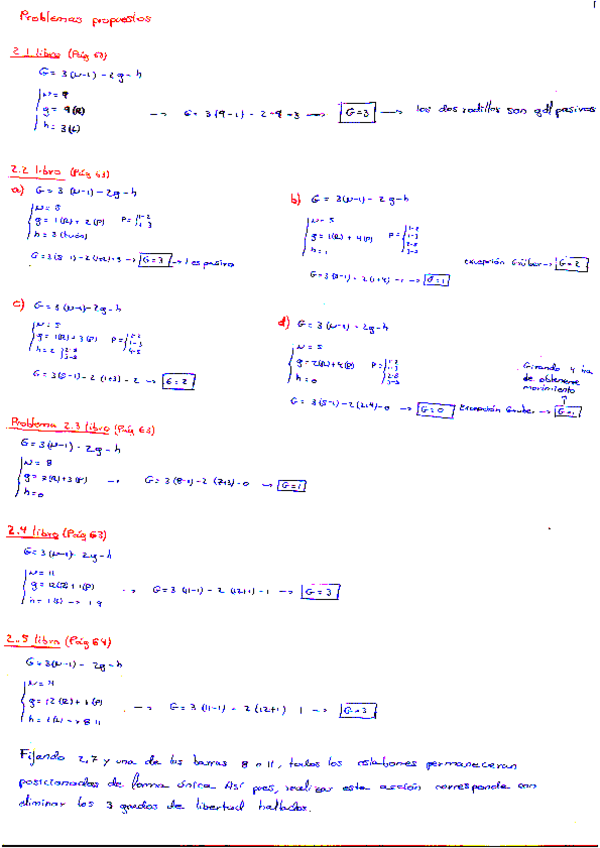 Problemas propuestos
2.1 libro (Pág 63)
G = 3(N-1) - 2g - h
N = 9
g = 9(R)
h = 3(E)
→ G = 3(9-1) - 2·9 - 3 → G=3 → los dos rodillos son gdl pasivos
2.2 libro (Pág 63)
a) G = 3(N-1) - 2g - h
N = 5
g = 1(R) + 2(P) P =
h = 3
→ G=3 → 1 es pasivo
b) G = 3(N-1) - 2g - h
N = 5
g = 1(R) + 4(P) P =
h = 1
excepción Grüber → G=2
G = 3(5-1) - 2(1+4) - 1 → G=1
c) G = 3(N-1) - 2g - h
N = 5
g = 1(R) + 3(P) P =
h = 2
G = 3(5-1) - 2(1+3) - 2 → G=2
d) G = 3(N-1) - 2g - h
N = 5
g = 2(R) + 4(P) P =
h = 0
Girando 4
de obtenerse
movimiento
G = 3(5-1) - 2(2+4) - 0 → G=0 excepción Gruber → G=1
Problema 2.3 libro (Pág 63)
G = 3(N-1) - 2g - h
N = 8
g = 7(R) + 3(P) → G = 3(8-1) - 2(7+3) - 0 → G=1
h = 0
2.4 libro (Pág 63)
G = 3(N-1) - 2g - h
N = 11
g = 12(R) + 1(P) → G = 3(11-1) - 2(12+1) - 1 → G=3
h = 1
2.5 libro (Pág 64)
G = 3(N-1) - 2g - h
N = 11
g = 12(R) + 1(P) → G = 3(11-1) - 2(12+1) 1 → G=3
h = 1(E) → 8 11
Fijando 2,7 y una de las barras 8 o 11, todos los eslabones permanecerán
posicionados de forma única. Así pues, realizar esta acción corresponde con
eliminar los 3 grados de libertad hallados.